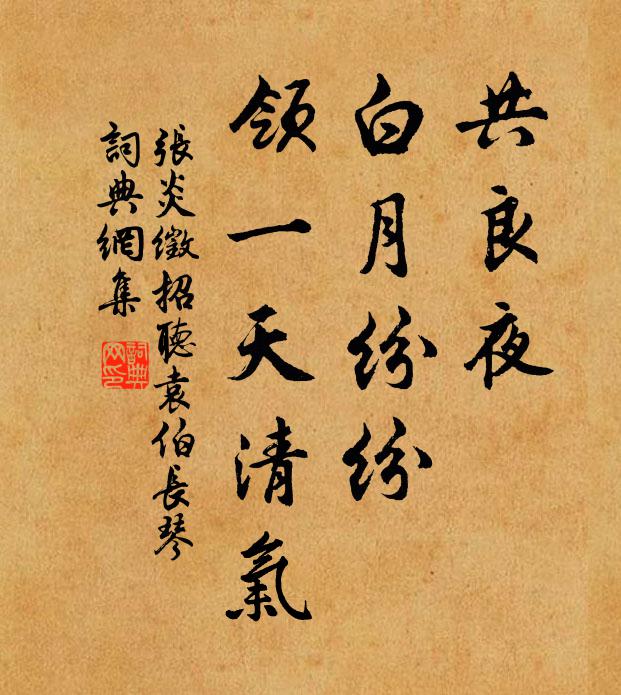 共良夜
白月纷纷
領一天清氣
張炎徵招聽袁伯長琴
詞典網集
詞典網印